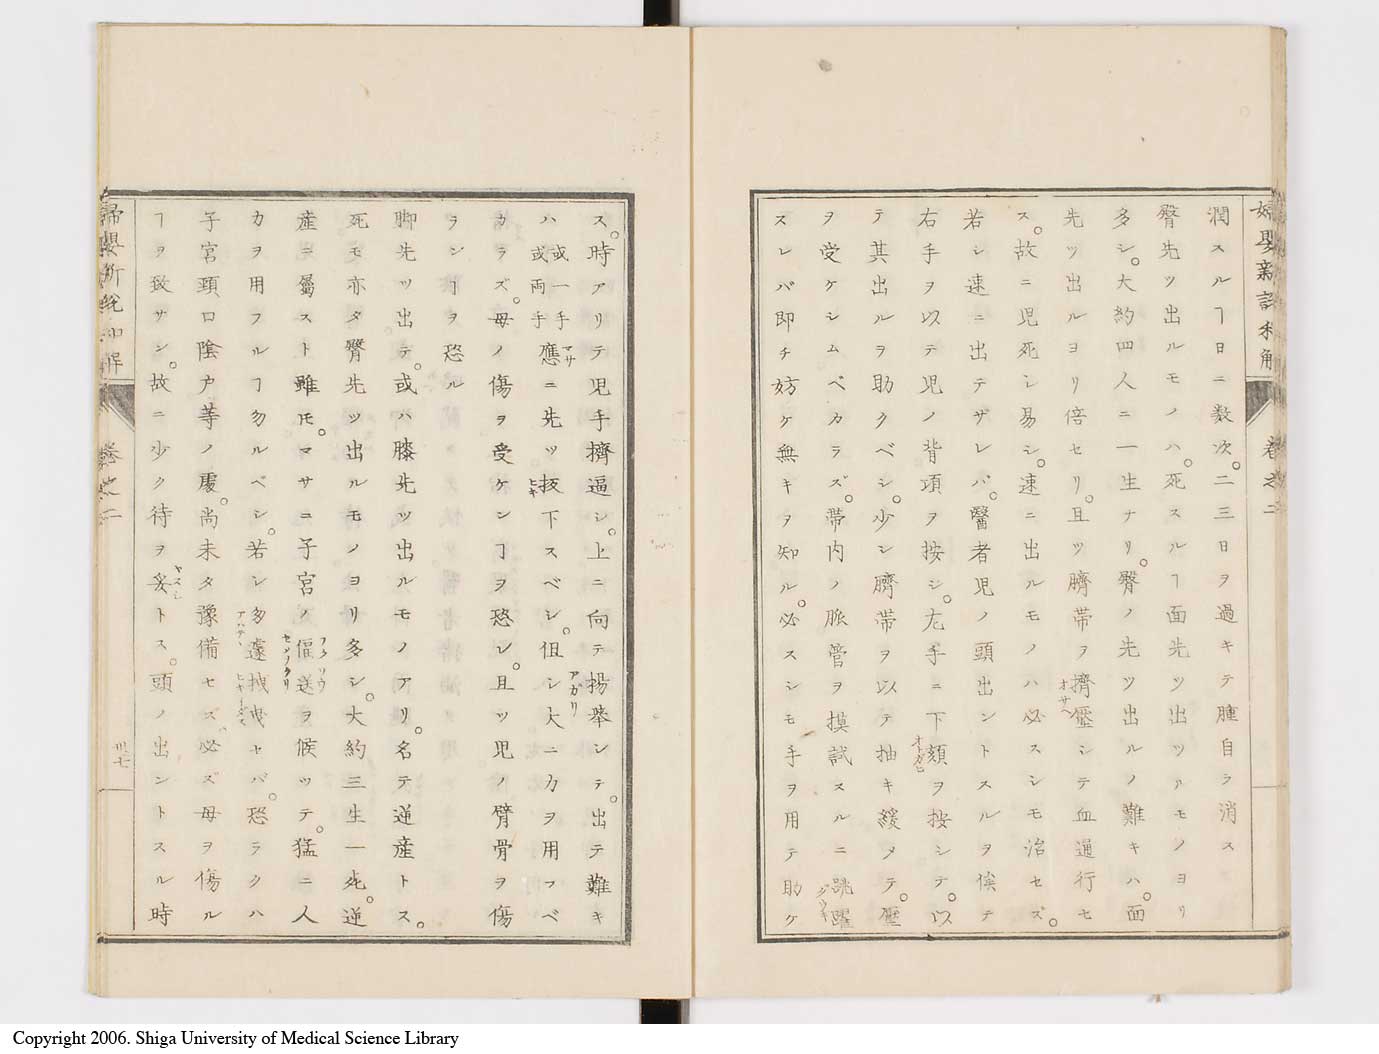 婦嬰新説和解
卷之二
潤スルヿ日ニ數次。二三日ヲ過キテ腫自ラ消ス
臀先ツ出ルモノハ。死スルヿ面先ツ出ツルモノヨリ
多シ。大約四人ニ一生ナリ。臀ノ先ツ出ルノ難キハ。面
先ツ出ルヨリ倍セリ。且ツ臍帯ヲ擠壓シテ血通行セ
オサヘ
ス。故ニ児死シ易シ。速ニ出ルモノハ必スシモ治セズ。
若シ速ニ出テザレバ。醫者児ノ頭出ントスルヲ俟テ
右手ヲ以テ児ノ背項ヲ按シ。左手ニ下頦ヲ按シテ。以
オトガヒ
テ其出ルヲ助クベシ。少シ臍帯ヲ以テ抽キ緩メテ。壓
ヲ受ケシムベカラズ。帯内ノ脈管ヲ摸試スルニ跳躍
スレバ即チ妨ケ無キヲ知ル。必スシモ手ヲ用テ助ケ
ス。時アリテ児手擠逼シ。上ニ向テ揚擧シテ。出テ難キ
アガリ
ハ或一手或両手應ニ先ツ抜下スベシ。但シ大ニ力ヲ用フベ
マサ
ヒキ
カラズ。母ノ傷ヲ受ケンヿヲ恐レ。且ツ児ノ臂骨ヲ傷
ランヿヲ恐ル
脚先ツ出テ。或ハ膝先ツ出ルモノアリ。名テ逆産トス。
死モ亦タ臀先ツ出ルモノヨリ多シ。大約三生一死。逆
産ニ屬スト雖モ。マサニ子宮ノ偪送ヲ候ツテ。猛ニ人
力ヲ用フルヿ勿ルベシ。若シ多遽拽曳セバ。恐ラクハ
子宮頚口陰戸等ノ處。尚未タ豫備セズ。必ズ母ヲ傷ル
ヿヲ致サン。故ニ少ク待ヲ妥トス。頭ノ出ントスル時
ヤスシ
婦嬰新説和解
卷之二
卅七
Copyright 2006. Shiga University of Medical Science Library